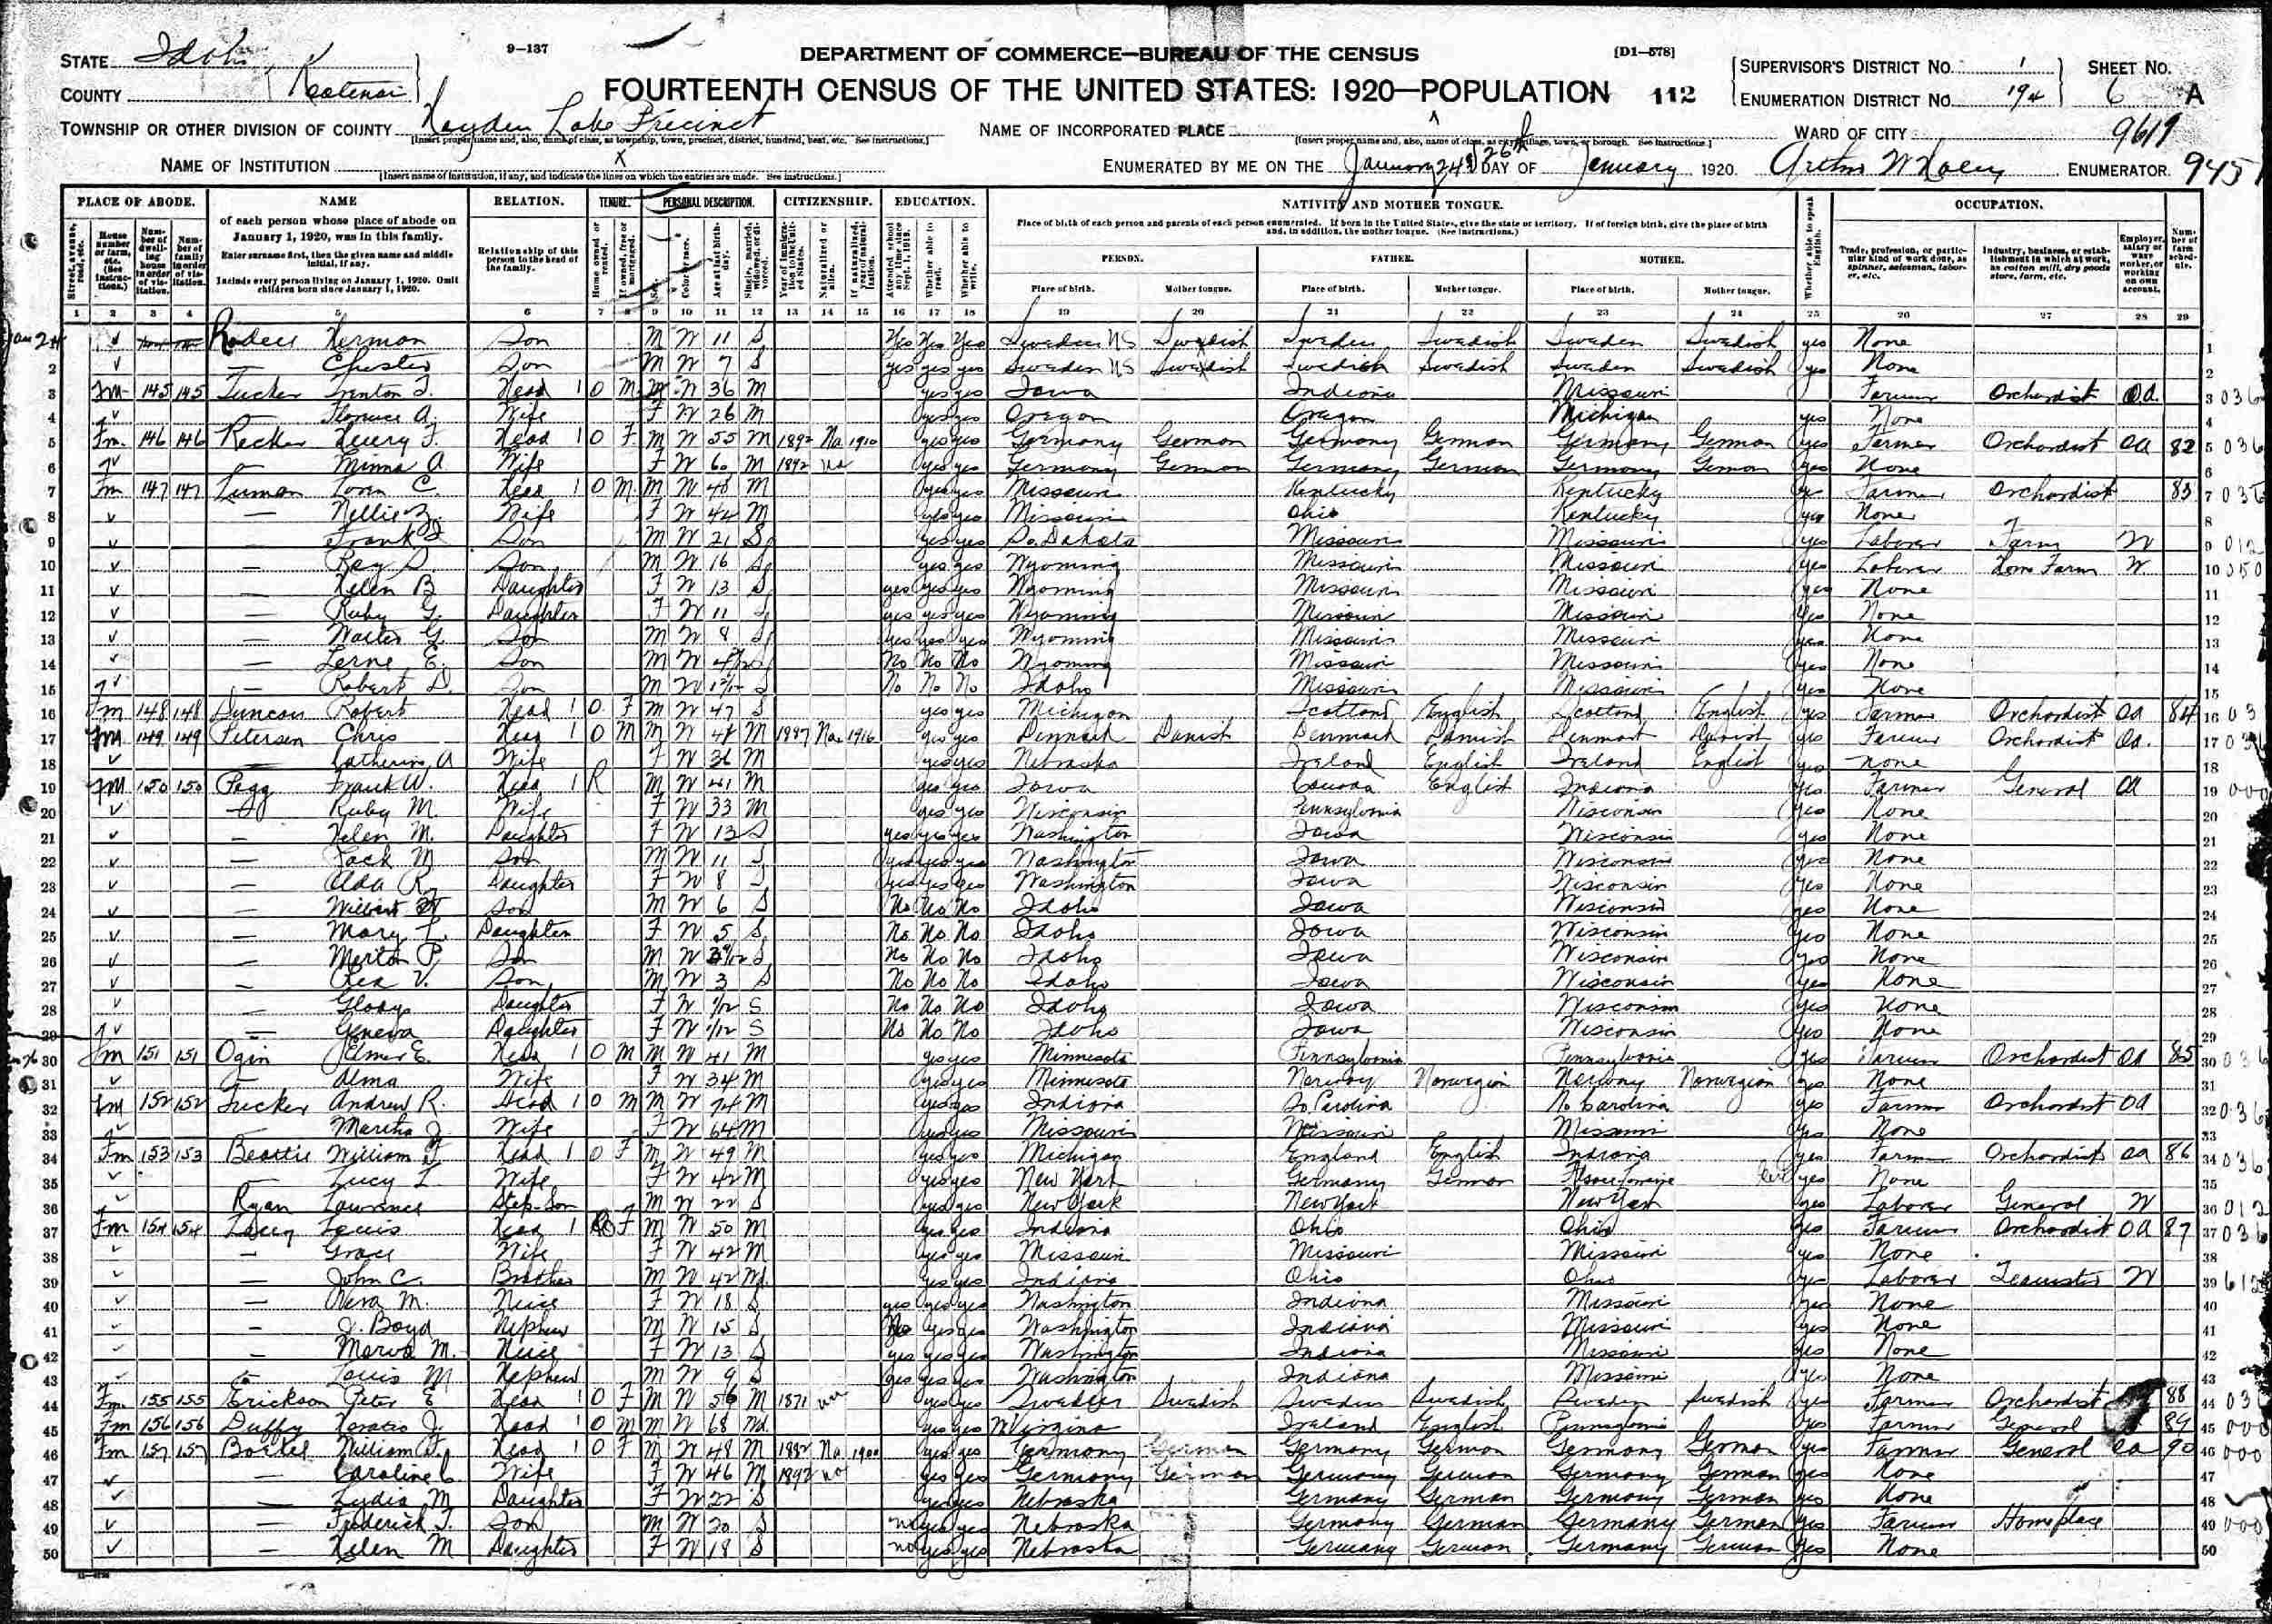 9-137
DEPARTMENT OF COMMERCE—BUREAU OF THE CENSUS
[D1-578]
STATE Idaho
COUNTY Kootenai
FOURTEENTH CENSUS OF THE UNITED STATES: 1920—POPULATION
112
SUPERVISOR'S DISTRICT NO. 1
ENUMERATION DISTRICT NO. 194
SHEET NO. 6 A
TOWNSHIP OR OTHER DIVISION OF COUNTY Hayden Lake Precinct
NAME OF INCORPORATED PLACE
WARD OF CITY
9619
NAME OF INSTITUTION X
[Insert name of institution, if any, and indicate the lines on which the entries are made. See instructions.]
ENUMERATED BY ME ON THE January 24 26 DAY OF January, 1920. ENUMERATOR.
PLACE OF ABODE. NAME RELATION. TENURE. PERSONAL DESCRIPTION. CITIZENSHIP. EDUCATION. NATIVITY AND MOTHER TONGUE. OCCUPATION.
of each person whose place of abode on January 1, 1920, was in this family.
Enter surname first, then the given name and middle initial, if any.
Include every person living on January 1, 1920. Omit children born since January 1, 1920.
Relationship of this person to the head of the family.
Place of birth of each person and parents of each person enumerated. If born in the United States, give the state or territory. If of foreign birth, give the place of birth and, in addition, the mother tongue. (See Instructions.)
PERSON. FATHER. MOTHER.
Place of birth. Mother tongue. Place of birth. Mother tongue. Place of birth. Mother tongue.
1 2 3 4 5 6 7 8 9 10 11 12 13 14 15 16 17 18 19 20 21 22 23 24 25 26 27 28 29
1 Herman Son M W 11 S Yes Yes Yes Sweden US Swedish Sweden Swedish Sweden Swedish yes None
2 — Chester Son M W 7 S yes yes yes Sweden US Swedish Swedish Swedish Sweden Swedish yes None
3 Fm 145 145 Tucker Head 1 O M M W 36 M yes yes Iowa Indiana Missouri Farmer Orchardist O.A.
4 Florence A. Wife F W 26 M yes yes Oregon Oregon Michigan yes None
5 Fm 146 146 Recker Head 1 O F M W 55 M 1892 Na 1910 yes yes Germany German Germany German Germany German yes Farmer Orchardist OA 82
6 — Minna A. Wife F W 60 M 1892 Na yes yes Germany German Germany German Germany German yes None
7 Fm 147 147 Head 1 O M M W 48 M yes yes Missouri Kentucky Kentucky yes Farmer Orchardist 83
8 — Nellie Wife F W 44 M yes yes Missouri Ohio Kentucky yes None
9 — Frank Son M W 21 S yes yes So. Dakota Missouri Missouri yes Laborer Farm W
10 — Ray D. Son M W 16 S yes yes Wyoming Missouri Missouri yes Laborer Home Farm W
11 — Helen B Daughter F W 13 S yes yes yes Wyoming Missouri Missouri yes None
12 — Ruby G. Daughter F W 11 S yes yes yes Wyoming Missouri Missouri yes None
13 — Walter G. Son M W 8 S yes yes yes Wyoming Missouri Missouri yes None
14 — Lerne E. Son M W S No No No Wyoming Missouri Missouri yes None
15 — Robert D. Son M W S No No No Idaho Missouri Missouri yes None
16 Fm 148 148 Duncan Robert Head 1 O F M W 47 S yes yes Michigan Scotland English Scotland English yes Farmer Orchardist OA 84
17 Fm 149 149 Petersen Chris Head 1 O M M W 48 M Na 1916 yes yes Denmark Danish Denmark Danish Denmark Danish yes Farmer Orchardist Oa.
18 — Catherine A Wife F W 36 M yes yes Nebraska Ireland English Ireland English yes none
19 Fm 150 150 Pegg Frank W. Head 1 R M W 41 M yes yes Iowa Canada English Indiana yes Farmer General OA
20 — Ruby M. Wife F W 33 M yes yes Wisconsin Pennsylvania Wisconsin yes None
21 — Helen M. Daughter F W 13 S yes yes yes Washington Iowa Wisconsin yes None
22 — Jack M Son M W 11 S yes yes yes Washington Iowa Wisconsin yes None
23 — Ada R. Daughter F W 8 S yes yes yes Washington Iowa Wisconsin yes None
24 — Wilbert Son M W 6 S No No No Idaho Iowa Wisconsin yes None
25 — Mary L. Daughter F W 5 S No No No Idaho Iowa Wisconsin yes None
26 — Merton P Son M W S No No No Idaho Iowa Wisconsin yes None
27 — Rex V. Son M W 3 S No No No Idaho Iowa Wisconsin yes None
28 — Gladys Daughter F W 1/12 S No No No Idaho Iowa Wisconsin yes None
29 — Geneva Daughter F W 1/12 S No No No Idaho Iowa Wisconsin yes None
30 Fm 151 151 Ogin Elmer E. Head 1 O M M W 41 M yes yes Minnesota Pennsylvania Pennsylvania yes Farmer Orchardist OA 85
31 — Alma Wife F W 34 M yes yes Minnesota Norway Norwegian Norway Norwegian yes None
32 Fm 152 152 Tucker Andrew R. Head 1 O M M W 74 M yes yes Indiana So. Carolina No. Carolina yes Farmer Orchardist OA
33 — Martha J. Wife F W 64 M yes yes Missouri Missouri Missouri yes None
34 Fm 153 153 Beattie William Head 1 O F M W 49 M yes yes Michigan England English Indiana yes Farmer Orchardist OA 86
35 — Lucy L. Wife F W 42 M yes yes New York Germany German Alsace Lorraine yes None
36 Ryan Lawrence Step-Son M W 22 S yes yes New York New York New York yes Laborer General W
37 Fm 154 154 Lacey Lewis Head 1 O F M W 50 M yes yes Indiana Ohio Ohio yes Farmer Orchardist OA 87
38 — Grace Wife F W 42 M yes yes Missouri Missouri Missouri yes None
39 — John C. Brother M W 42 yes yes Indiana Ohio Ohio yes Laborer Teamster W
40 — Neva M. Neice F W 18 S yes yes yes Washington Indiana Missouri yes None
41 — J. Boyd Nephew M W 15 S yes yes Washington Indiana Missouri yes None
42 — Marva M. Neice F W 13 S yes yes yes Washington Indiana Missouri yes None
43 — Louis M Nephew M W 9 S yes yes yes Washington Indiana Missouri yes None
44 Fm 155 155 Erickson Peter E Head 1 O F M W 56 M 1871 yes yes Sweden Swedish Sweden Swedish Sweden Swedish yes Farmer Orchardist 88
45 Fm 156 156 Duffy Horatio J. Head 1 O M M W 68 Wd. yes yes W Virginia Ireland English Pennsylvania yes Farmer General 89
46 Fm 157 157 William Head 1 O F M W 48 M 1882 Na 1900 yes yes Germany German Germany German Germany German yes Farmer General OA 90
47 — Caroline C. Wife F W 46 M 1892 yes yes Germany German Germany German Germany German yes None
48 — Lydia M Daughter F W 22 S yes yes Nebraska Germany German Germany German yes None
49 — Frederick Son M W 20 S no yes yes Nebraska Germany German Germany German yes Farmer Home place
50 — Helen M Daughter F W 18 S no yes yes Nebraska Germany German Germany German yes None